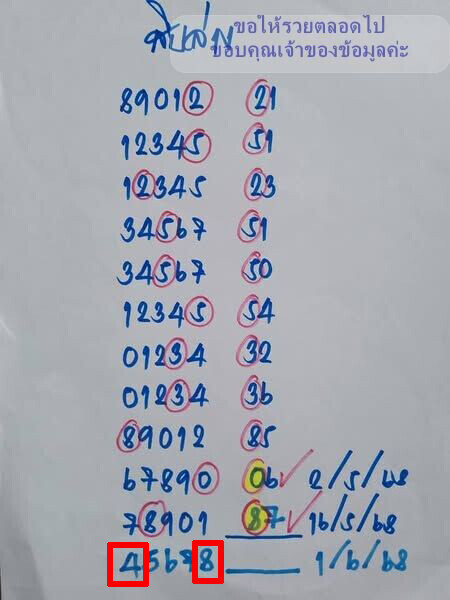 ขอให้รวยตลอดไป
ขอบคุณเจ้าของข้อมูลค่ะ
สิบล่าง
89012 21
12345 51
12345 23
34567 51
34567 50
12345 54
01234 32
01234 36
89012 85
67890 06 ✓ 2/5/68
78901 87 ✓ 16/5/68
45678 ____ 1/6/68